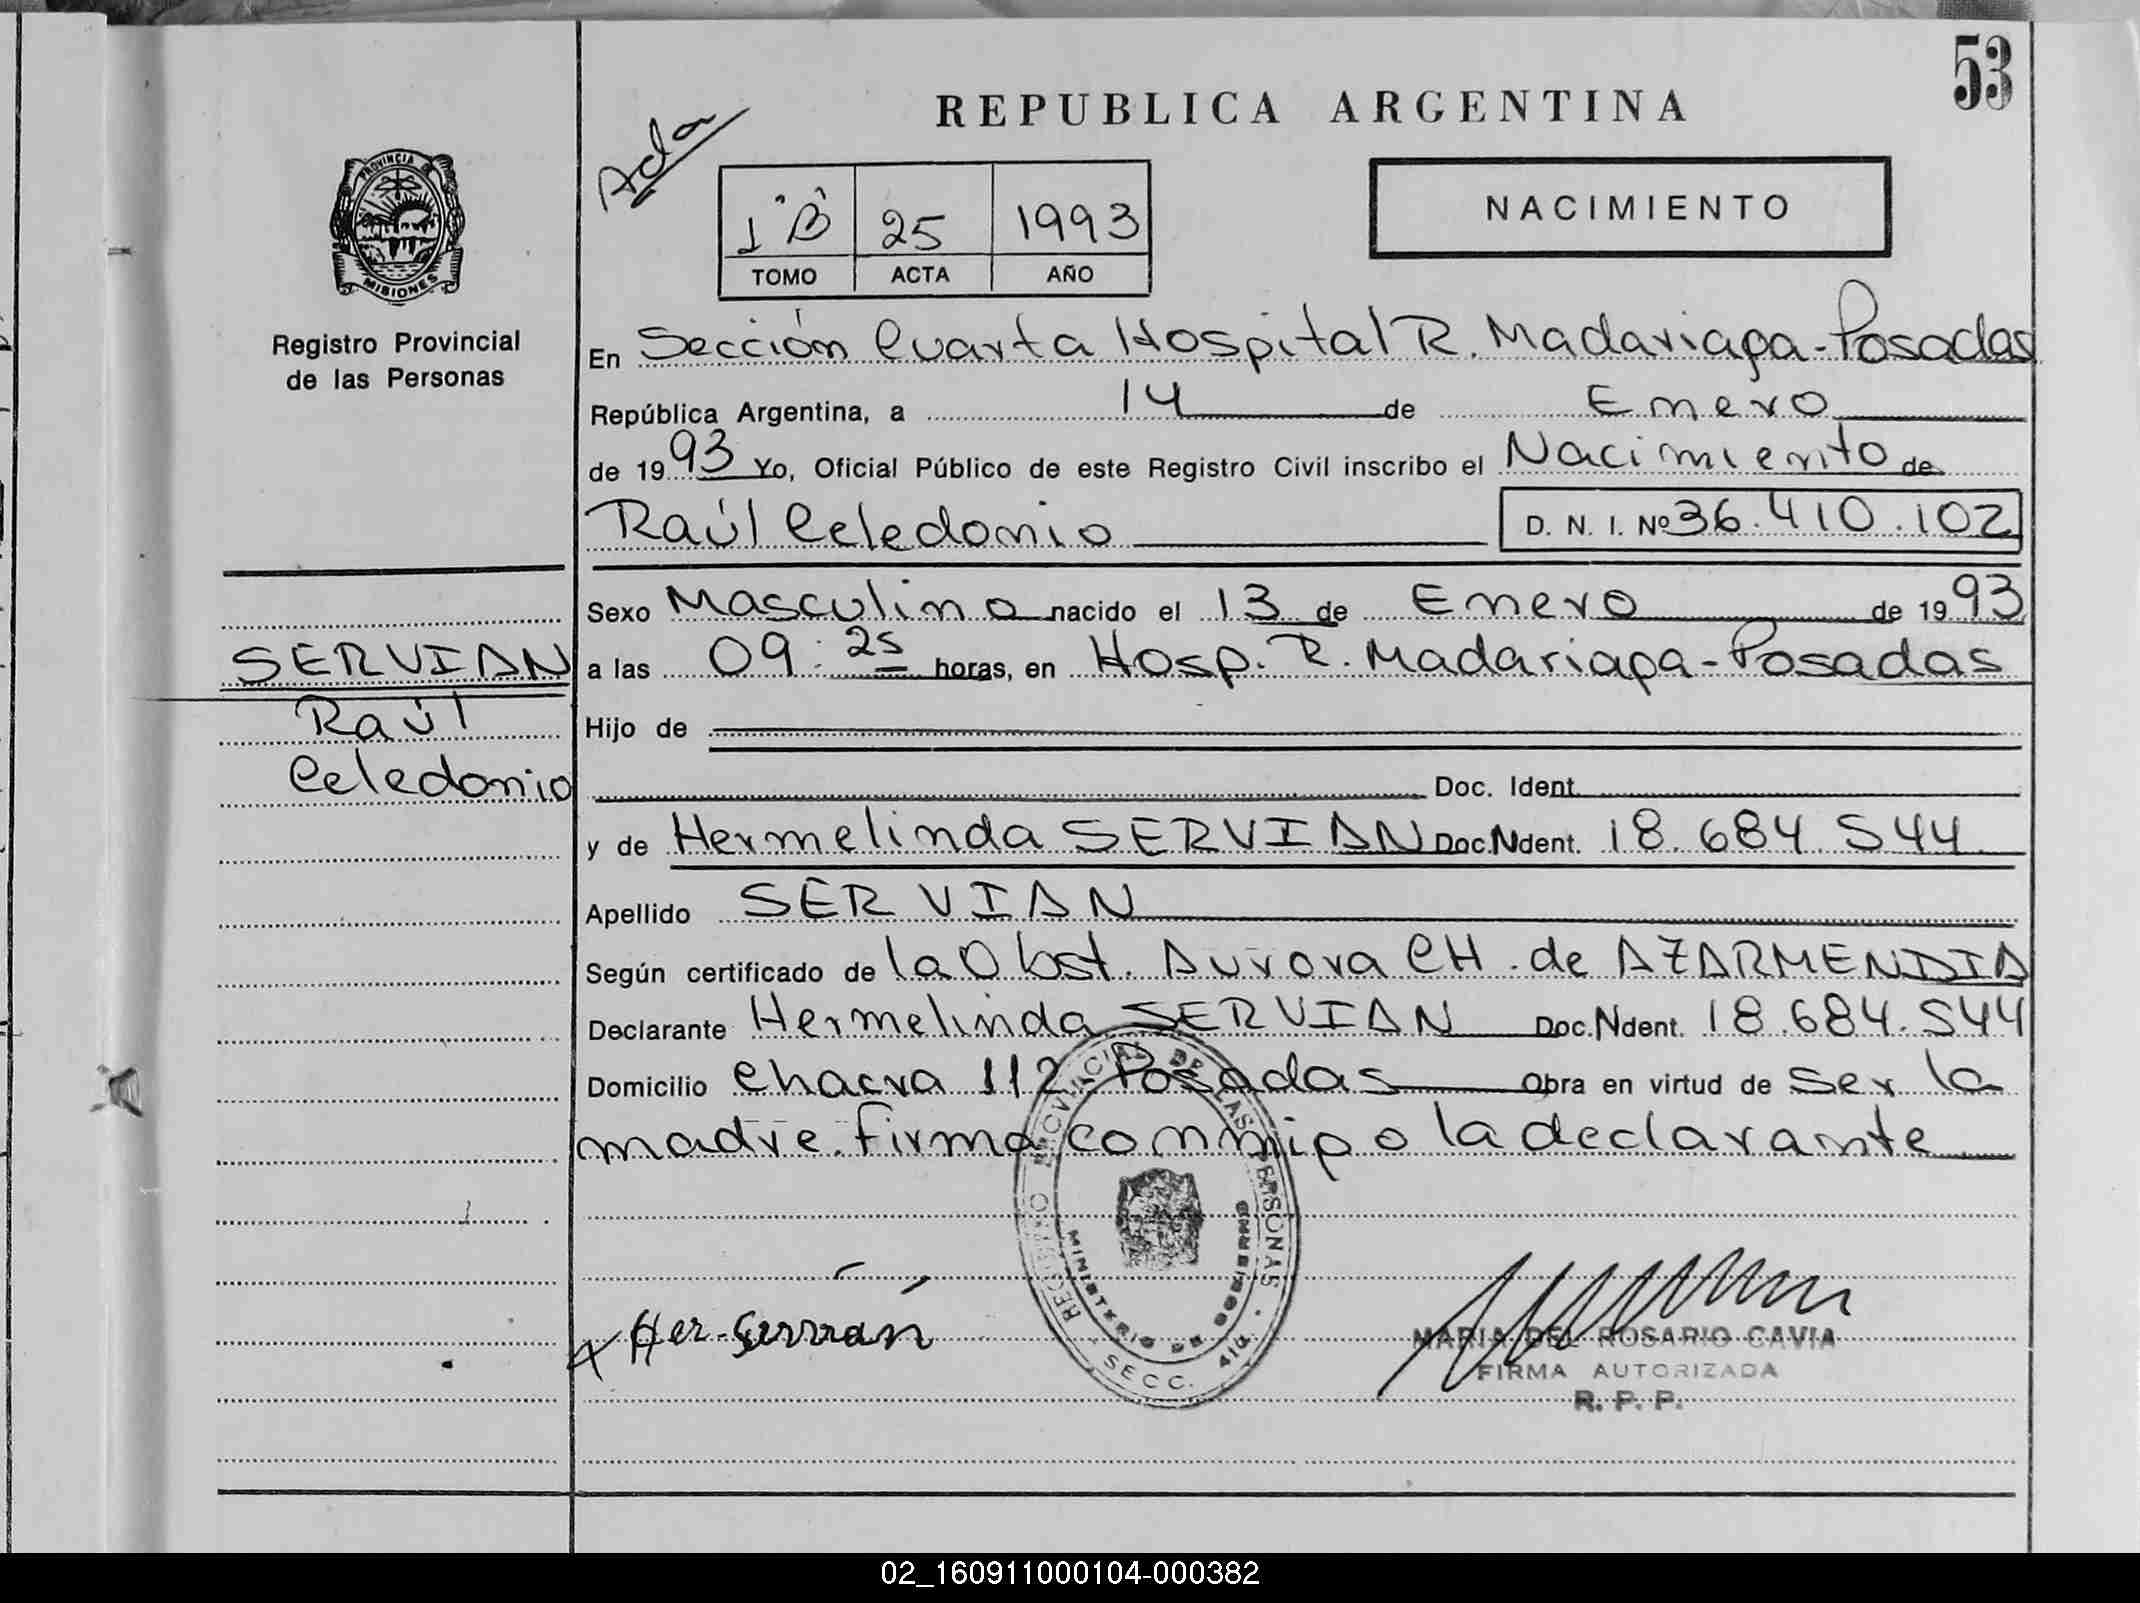 53
REPUBLICA ARGENTINA
Acta
PROVINCIA
MISIONES
Registro Provincial
de las Personas
1 "B" 25 1993
TOMO ACTA AÑO
NACIMIENTO
En Sección Cuarta Hospital R. Madariaga-Posadas
República Argentina, a 14 de Enero
de 1993 Yo, Oficial Público de este Registro Civil inscribo el Nacimiento de
Raúl Celedonio D. N. I. Nº 36.410.102
Sexo Masculino nacido el 13 de Enero de 1993
SERVIAN
a las 09:25 horas, en Hosp. R. Madariaga-Posadas
Raúl
Hijo de
Celedonio
Doc. Ident.
y de Hermelinda SERVIAN Doc.Ndent. 18.684.544
Apellido SERVIAN
Según certificado de la Obst. Aurora CH. de AZARMENDIA
Declarante Hermelinda SERVIAN Doc.Ndent. 18.684.544
Domicilio Chacra 112 Posadas Obra en virtud de Ser la
madre. Firma conmigo la declarante
REGISTRO PROVINCIAL DE LAS PERSONAS
MINISTERIO DE GOBIERNO
SECC. 4ta.
Her-Servián
MARIA DEL ROSARIO CAVIA
FIRMA AUTORIZADA
R. P. P.
02_160911000104-000382